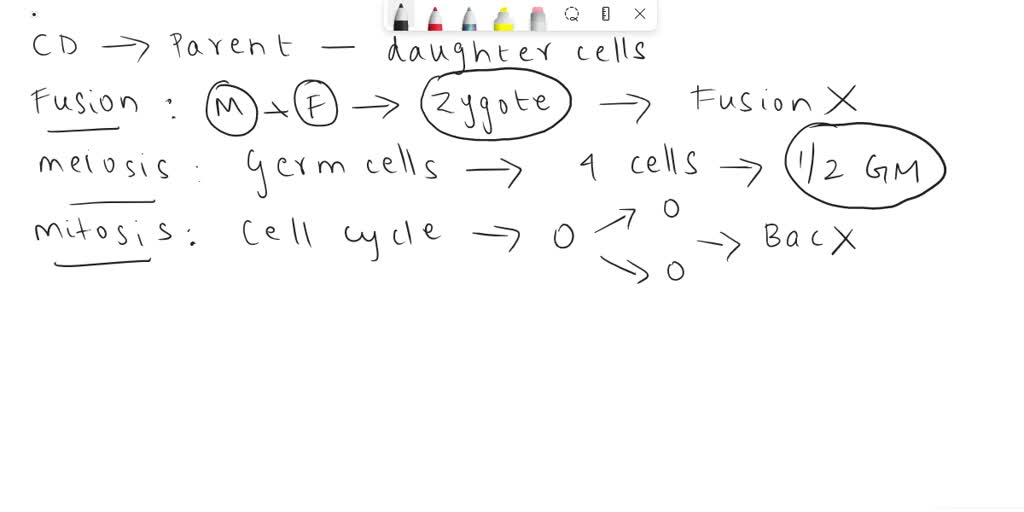 CD → Parent – daughter cells
Fusion : M × F → Zygote → Fusion X
meiosis : Germ cells → 4 cells → 1/2 GM
mitosis : Cell cycle → O ↗ O ↘ O → Bac X